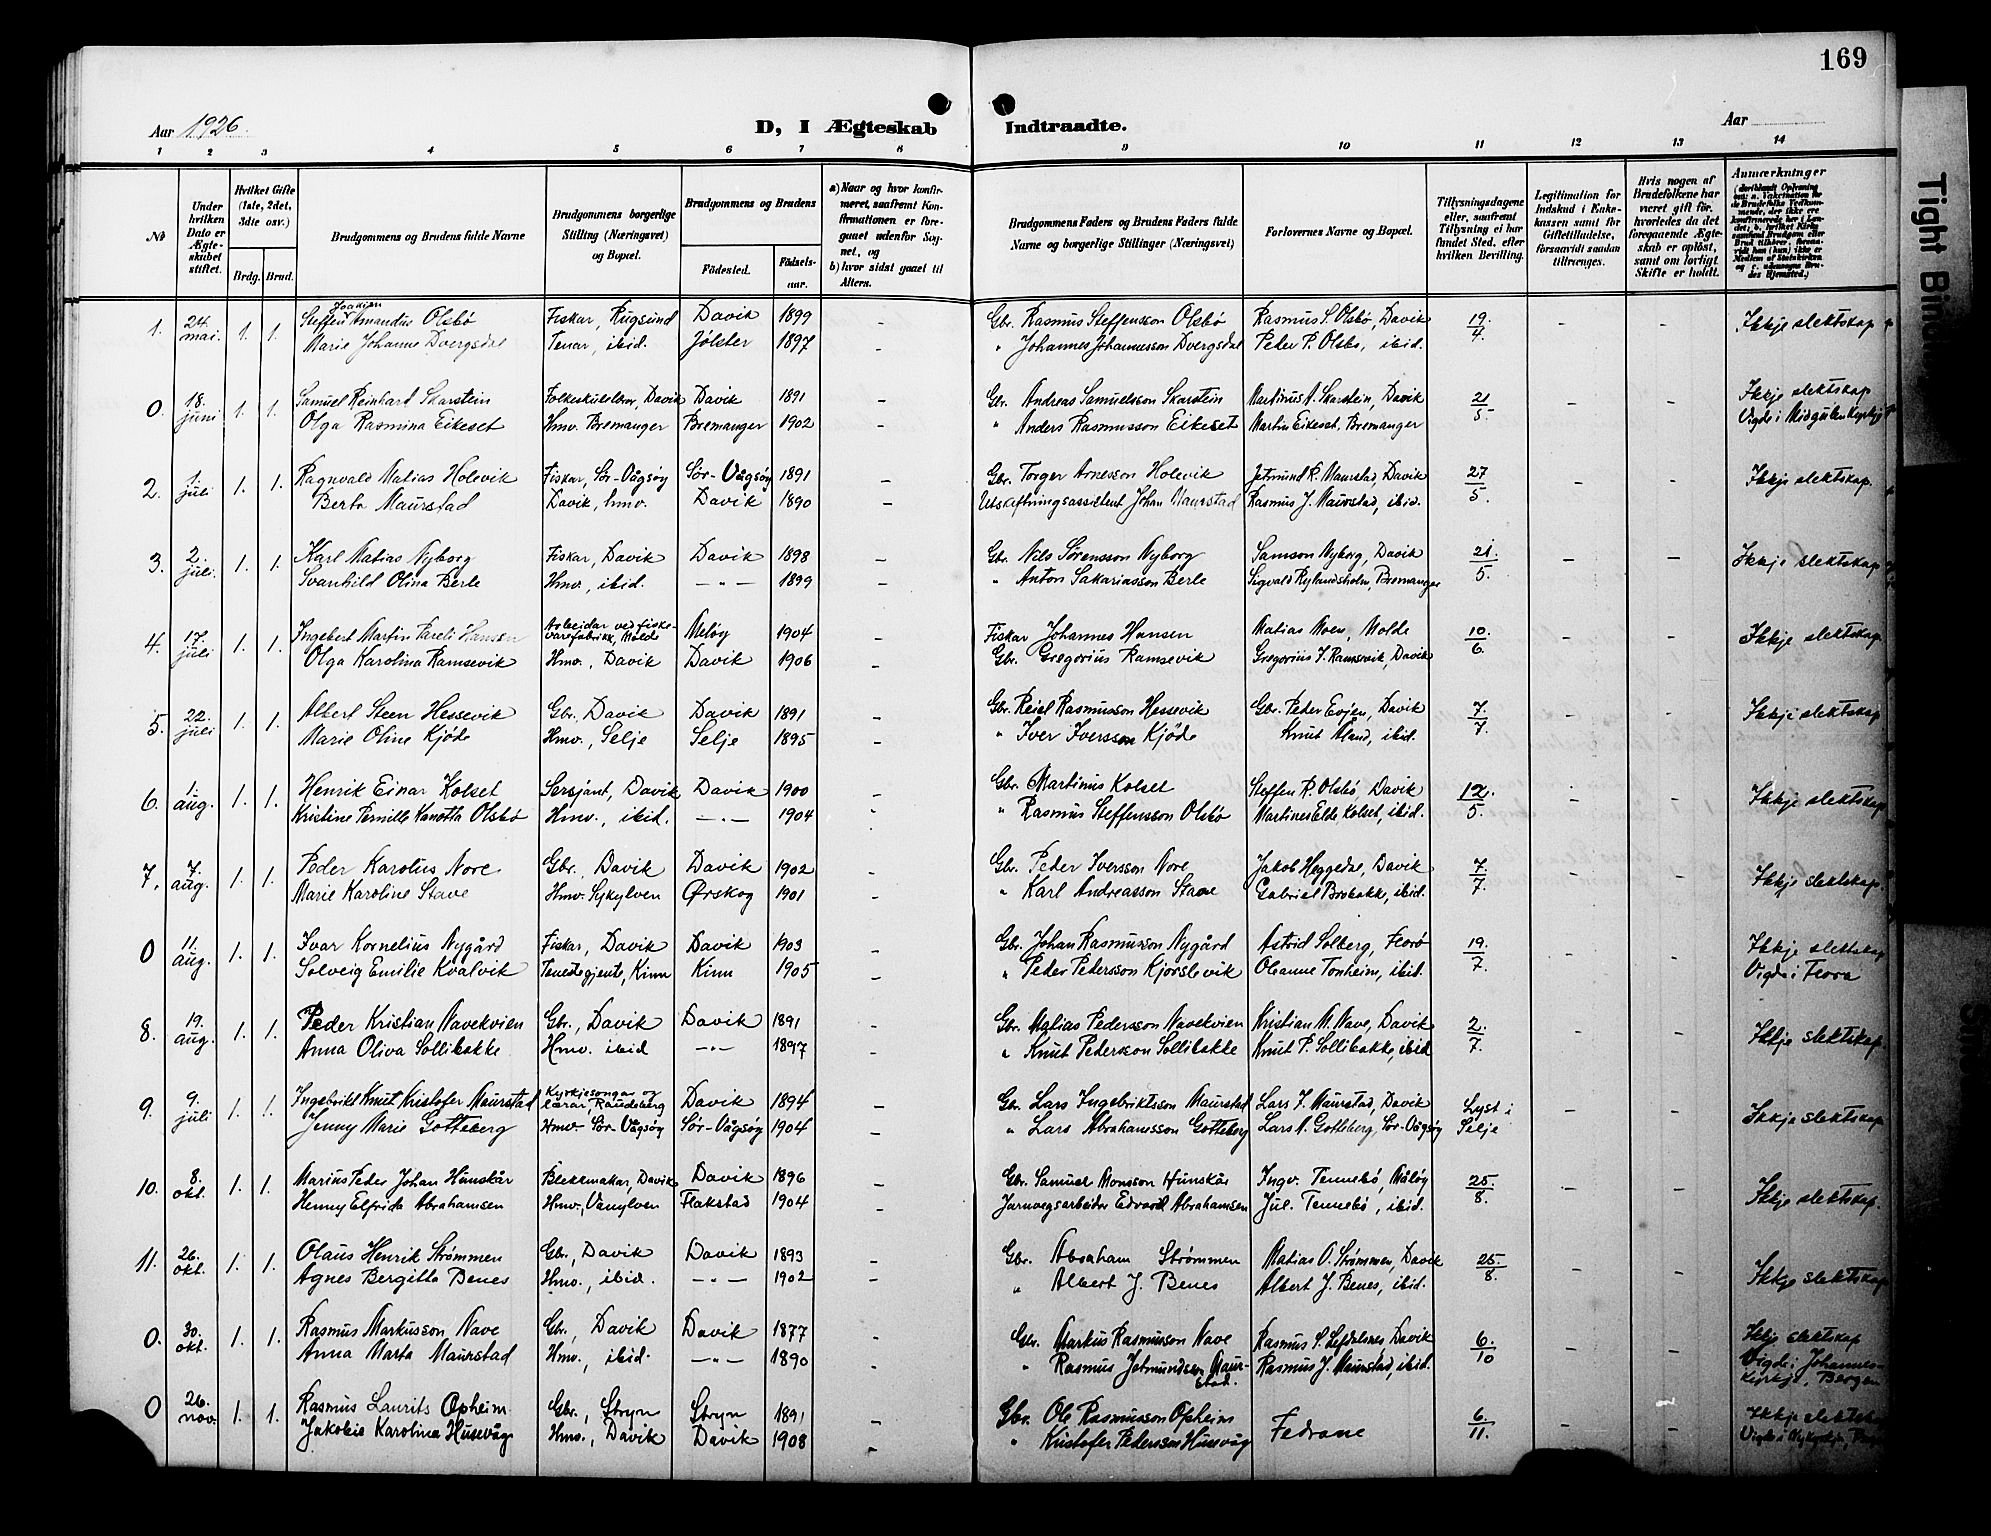 169
Aar 1926.
D, I Ægteskab Indtraadte.
Aar
1 2 3 4 5 6 7 8 9 10 11 12 13 14
No
Under hvilken Dato er Ægteskabet stiftet.
Hvilket Gifte (1ste, 2det, 3die osv.)
Brdg. Brud.
Brudgommens og Brudens fulde Navne
Brudgommens borgerlige Stilling (Næringsvei) og Bopæl.
Brudgommens og Brudens
Fødested. Fødselsaar.
a) Naar og hvor konfirmeret, saafremt Konfirmationen er foregaaet udenfor Sognet, og
b) hvor sidst gaaet til Alters.
Brudgommens Faders og Brudens Faders fulde Navne og borgerlige Stillinger (Næringsvei)
Forlovernes Navne og Bopæl.
Tillysningsdagene eller, saafremt Tillysning ei har fundet Sted, efter hvilken Bevilling.
Legitimation for Indskud i Enkekassen samt for Giftetilladelse, forsaavidt saadan tiltrænges.
Hvis nogen af Brudefolkene har været gift før, hvorledes da det foregaaende Ægteskab er opløst, samt om lovligt Skifte er holdt.
Anmærkninger
1. 24. mai. 1. 1. Steffen Joakim Amandus Olsbø Fiskar, Rugsund Davik 1899 - Gbr. Rasmus Steffensson Olsbø Rasmus S. Olsbø, Davik 19./4. - - Ikkje slektskap
Marie Johanne Dvergsdal Tenar, ibid. Jølster 1897 - " Johannes Johannesson Dvergsdal Peder P. Olsbø, ibid.
0. 18. juni 1. 1. Samuel Reinhard Skarstein Folkeskulelærar, Davik Davik 1891 - Gbr. Andreas Samuelsson Skarstein Martinus A. Skarstein, Davik 21/5. - - Ikkje slektskap
Olga Rasmina Eikeset Hmv. Bremanger Bremanger 1902 - " Anders Rasmusson Eikeset Martin Eikeset, Bremanger Vigde i Midgulen
2. 1. juli 1. 1. Ragnvald Matias Holevik Fiskar, Sør-Vågsøy Sør-Vågsøy 1891 - Gbr. Torger Arnesson Holevik Jetmund R. Maurstad, Davik 27/5. - - Ikkje slektskap.
Berta Maurstad Davik, hmv. Davik 1890 - Utskiftningsassistent Johan Maurstad Rasmus J. Maurstad, ibid.
3. 2. juli. 1. 1. Karl Matias Nyborg Fiskar, Davik Davik 1898 - Gbr. Nils Sørensson Nyborg Samson Nyborg, Davik 21./5. - - Ikkje slektskap
Svanhild Olina Berle Hmv., ibid. - " - 1899 " Anton Sakariasson Berle Sigvald Rylandsholm, Bremanger
4. 17. juli 1. 1. Ingebert Martin Pareli Hansen Arbeidar ved fiskevarefabrikk, Molde Meløy 1904 - Fiskar Johannes Hansen Matias Moen, Molde 10./6. - - Ikkje slektskap.
Olga Karolina Ramsevik Hmv., Davik Davik 1906 - Gbr. Gregorius Ramsevik Gregorius J. Ramsevik, Davik
5. 22. juli 1. 1. Albert Steen Hessevik Gbr., Davik Davik 1891 - Gbr. Reiel Rasmusson Hessevik Gbr. Peder Evjen, Davik 7./7. - - Ikkje slektskap
Marie Oline Kjøde Hmv., Selje Selje 1895 - " Iver Iversson Kjøde Knut Åland, ibid.
6. 1. aug. 1. 1. Henrik Einar Kolset Sersjant, Davik Davik 1900 - Gbr. Martinus Kolset Steffen R. Olsbø, Davik 12./5. - - Ikkje slektskap
Kristine Pernille Vanotta Olsbø Hmv., ibid. - " - 1904 " Rasmus Steffensson Olsbø Martines Elde Kolset, ibid.
7. 7. aug. 1. 1. Peder Karolus Nore Gbr., Davik Davik 1902 - Gbr. Peder Iversson Nore Jakob Heggedø, Davik 7./7. - - Ikkje slektskap.
Marie Karoline Stave Hmv. Sykylven Ørskog 1901 - " Karl Andreasson Stave Gabriel Brobakk, ibid.
0 11. aug. 1. 1. Ivar Kornelius Nygård Fiskar, Davik Davik 1903 - Gbr. Johan Rasmusson Nygård Astrid Solberg, Florø 19./7. - - Ikkje slektskap
Solveig Emilie Kvalvik Tenestegjente, Kinn Kinn 1905 - " Peder Pedersson Kjørslevik Oleanne Tonheim, ibid. Vigde i Florø
8. 19. aug. 1. 1. Peder Kristian Navekvien Gbr., Davik Davik 1891 - Gbr. Matias Pedersson Navekvien Kristian M. Nave, Davik 2./7. - - Ikkje slektskap.
Anna Oliva Sollibakke Hmv. ibid - " - 1897 - " Knut Pedersson Sollibakke Knut P. Sollibakke, ibid
9. 9. juli 1. 1. Ingebrikt Knut Kristofer Maurstad Kyrkjesongar og lærar Raudeberg Davik 1894 - Gbr. Lars Ingebriktsson Maurstad Lars J. Maurstad, Davik Lyst i Selje - - Ikkje slektskap
Jenny Marie Gotteberg Hmv. Sør-Vågsøy Sør-Vågsøy 1904 - " Lars Abrahamsson Gotteberg Lars A. Gotteberg, Sør-Vågsøy
10. 8. okt. 1. 1. Marius Peder Johan Hunskår Blekkmakar, Davik Davik 1896 - Gbr. Samuel Monsson Hunskår Ingv. Tennebø, Måløy 25./8. - - Ikkje slektskap.
Henny Elfrida Abrahamsen Hmv., Vanylven Flakstad 1904 - Jarnvegsarbeidar Edvard Abrahamsen Jul. Tennebø, ibid.
11. 26. okt. 1. 1. Olaus Henrik Strømmen Gbr., Davik Davik 1893 - Gbr. Abraham Strømmen Matias O. Strømmen, Davik 25./8. - - Ikkje slektskap
Agnes Bergitta Benes Hmv., ibid. - " - 1902 - " Albert J. Benes Albert J. Benes, ibid.
0. 30. okt. 1. 1. Rasmus Markusson Nave Gbr., Davik Davik 1877 - Gbr. Markus Rasmusson Nave Rasmus S. Lefdalsnes Davik 6./10 - - Ikkje slektskap
Anna Marta Maurstad Hmv., ibid. - " - 1890 - " Rasmus Jetmundson Maurstad. Rasmus J. Maurstad, ibid. Vigde i Johanneskirkje, Bergen
0 26. nov. 1. 1. Rasmus Laurits Opheim Gbr., Stryn Stryn 1891 - Gbr. Ole Rasmusson Opheim Fedrane 6./11. - - Ikkje slektskap
Jakobie Karolina Husevåg Hmv., Davik Davik 1908 - " Kristofer Pedersson Husevåg Vigde i Nykyrkja,
Tight Bind